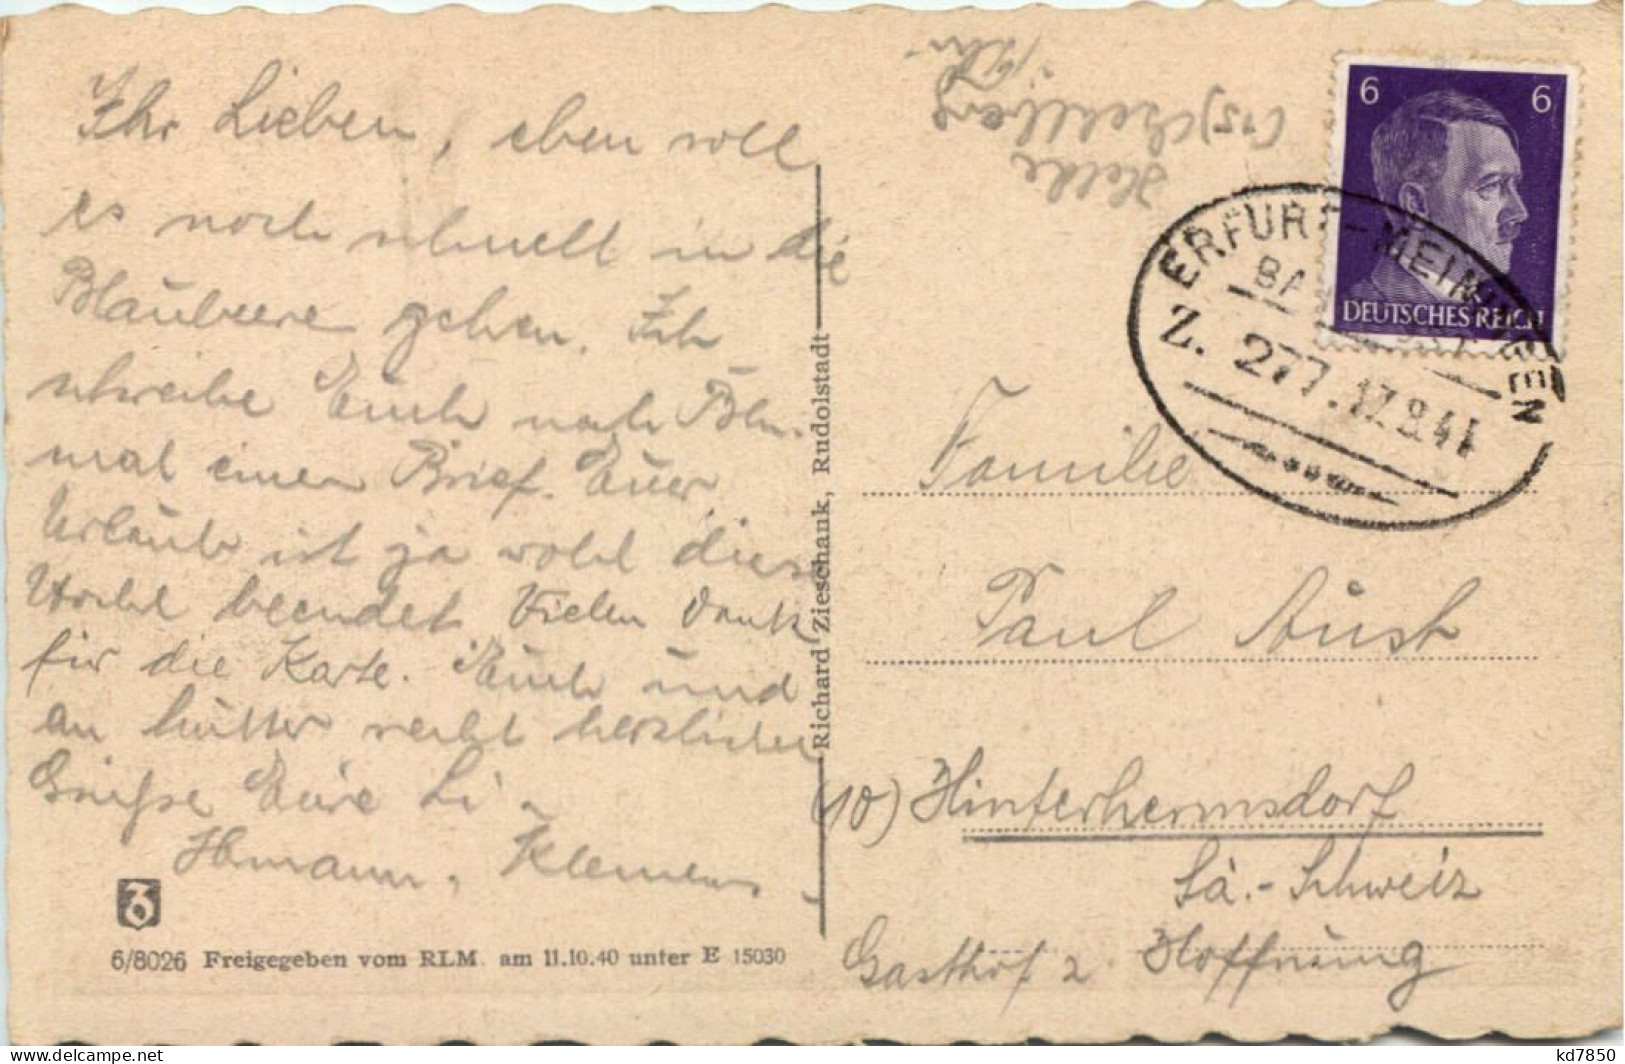 Ihr Lieben, eben soll
es noch schnell in die
Blaubeere gehen. Ich
schreibe Euch nach Bln.
mal einen Brief. Euer
Urlaub ist ja wohl diese
Woche beendet Vielen Dank
für die Karte. Euch und
an Mutter recht herzliche
Grüße Eure Li -
Hermann, Klemens -
6/8026 Freigegeben vom RLM. am 11.10.40 unter E 15030
Richard Zieschank, Rudolstadt
Heide
(15)
Thür
6 6
DEUTSCHES REICH
ERFURT-MEININGEN
BAHNPOST
Z. 277.17.8.44
Familie
Paul Aust
(10) Hinterhermsdorf
Sä.-Schweiz
Gasthof z. Hoffnung
kd7850
delcampe.net